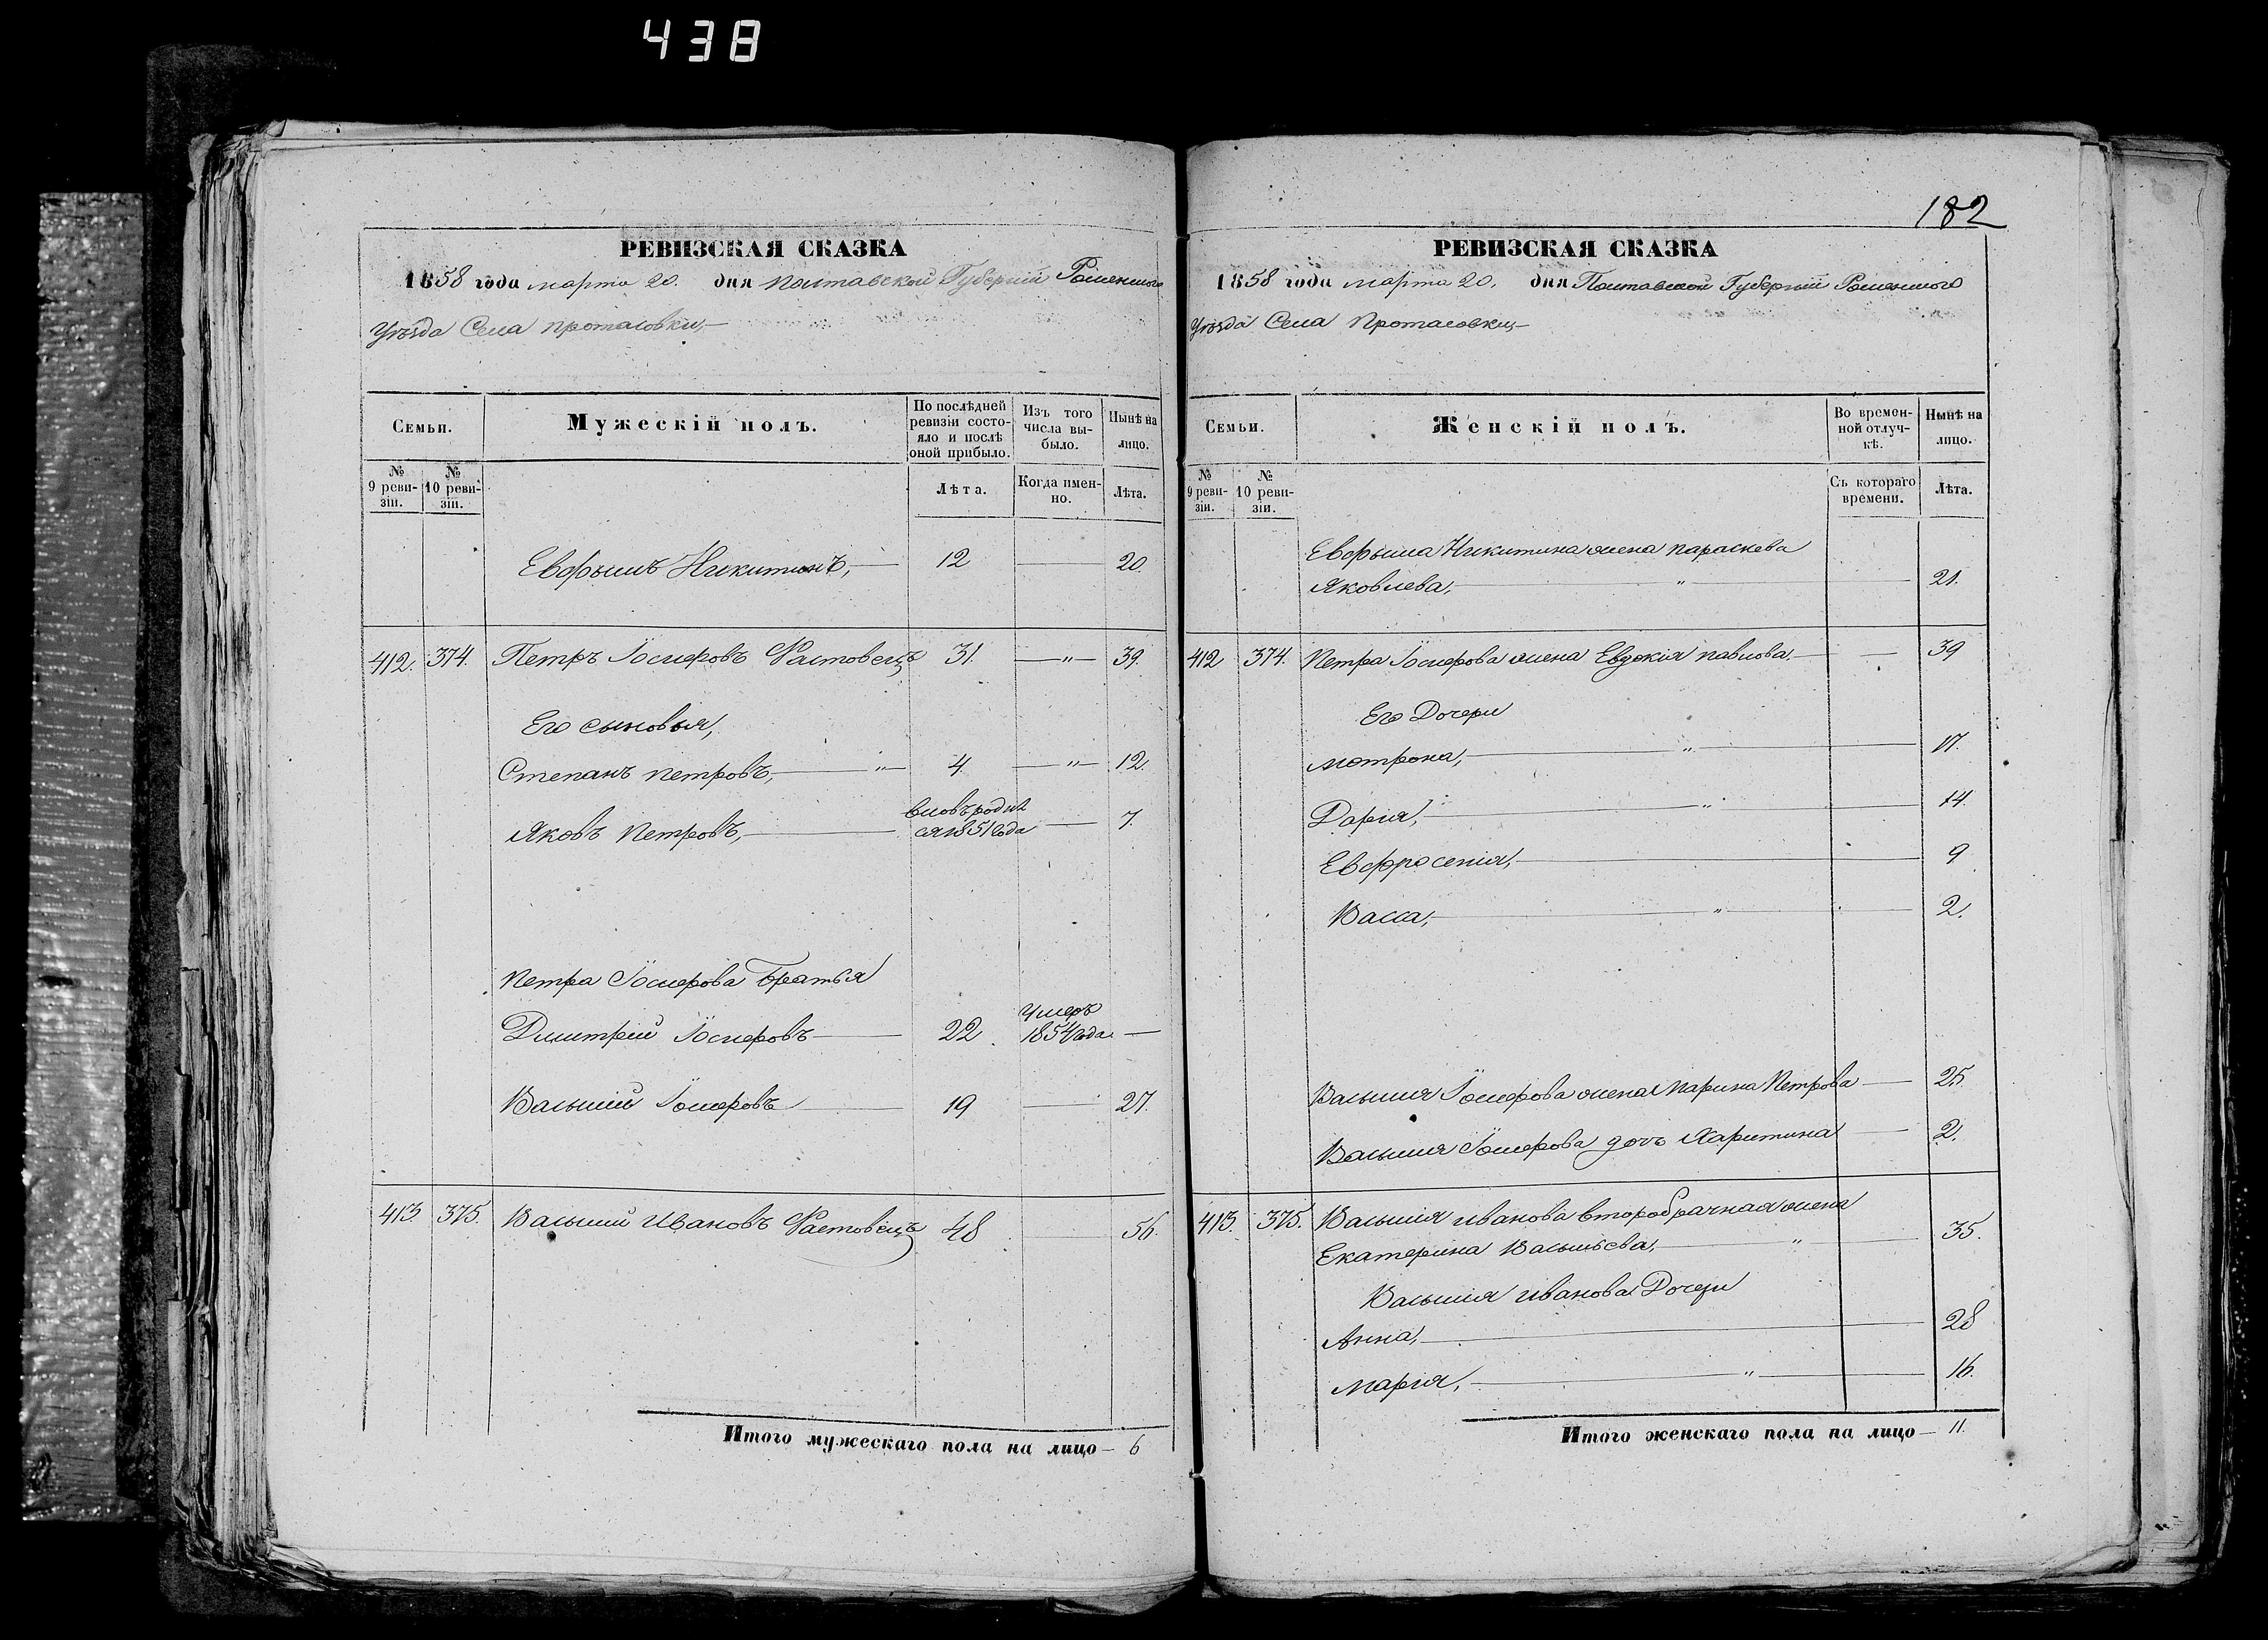 438
РЕВИЗСКАЯ СКАЗКА
1858 года марта 20. дня Полтавской Губерніи Роменского
Уѣзда Села Протасовки,
Семьи.
Мужескій полъ.
По послѣдней ревизіи состояло и послѣ оной прибыло.
Изъ того числа выбыло.
Нынѣ на лицо.
№ 9 ревизіи.
№ 10 ревизіи.
Лѣта.
Когда именно.
Лѣта.
Никитинъ, — 12 — 20.
412. 374. Петръ Іосифовъ 31. —"— 39.
Его сыновья,
Степанъ Петровъ, —"— 4. —"— 12.
Яковъ Петровъ, — вновь родил
ся 1851 года — 7.
Петра Іосифова Братья
Умеръ
Дмитрій Іосифовъ — 22. 1854 года —
Василій Іосифовъ — 19 — 27.
413. 375. Василій Ивановъ 48 — 56.
Итого мужескаго пола на лицо — 6
182
РЕВИЗСКАЯ СКАЗКА
1858 года марта 20. дня Полтавской Губерніи Роменского
Уѣзда Села Протасовки,
Семьи.
Женскій полъ.
Во временной отлучкѣ.
Нынѣ на лицо.
№ 9 ревизіи.
№ 10 ревизіи.
Съ котораго времени.
Лѣта.
Никитина жена Параскева
Яковлева, —"— 21.
412 374. Петра Іосифова жена Евдокія Павлова. — 39
Его Дочери
Мотрона, —"— 17.
Дарія, —"— 14.
Евфросенія, — 9
Васса, —"— 2.
Василия Іосифова жена Марина Петрова — 25.
Василия Іосифова дочь Харитина — 2.
413. 375. Василия Иванова второбрачная жена
Екатерина Васильева, —"— 35.
Василия Иванова Дочери
Анна, — 28
Марія, —"— 16.
Итого женскаго пола на лицо — 11.